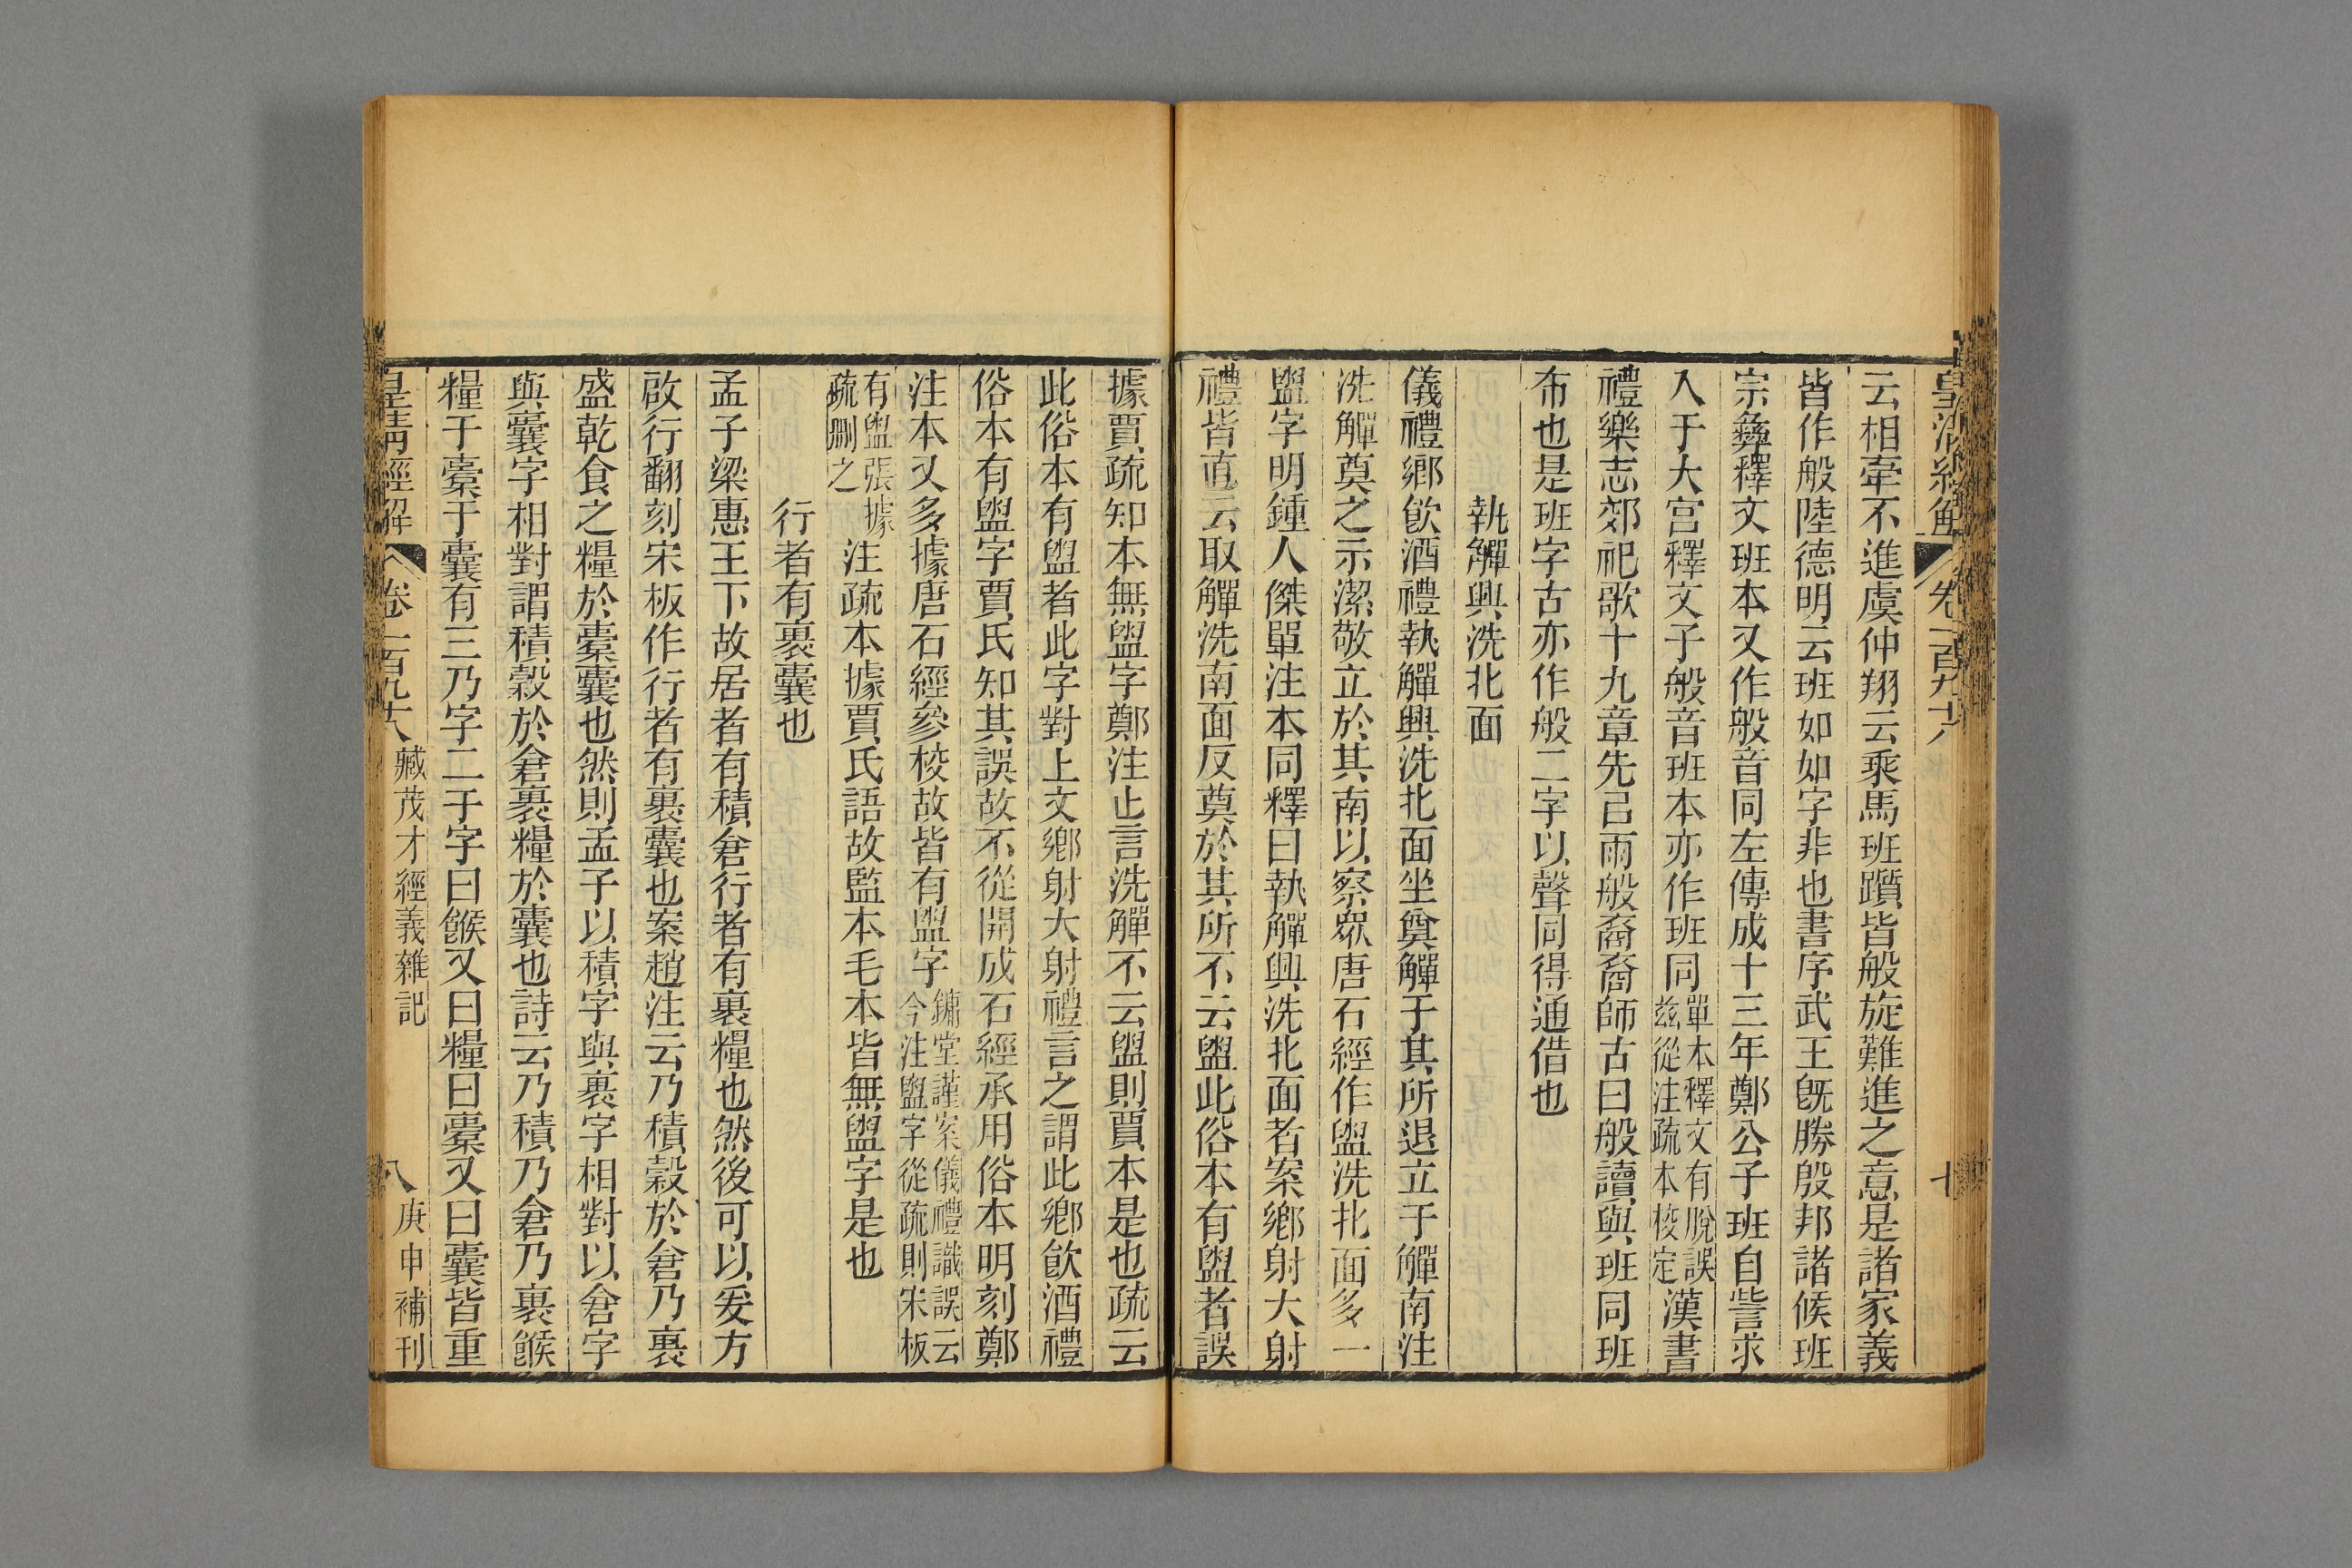 皇清經解 卷一百九十八
云相牽不進虞仲翔云乘馬班躓皆般旋難進之意是諸家義
皆作般陸德明云班如如字非也書序武王旣勝殷邦諸候班
宗彝釋文班本又作般音同左傳成十三年鄭公子班自訾求
入于大宮釋文子般音班本亦作班同單本釋文有脫誤兹從注疏本校定漢書
禮樂志郊祀歌十九章先已雨般裔裔師古曰般讀與班同班
布也是班字古亦作般二字以聲同得通借也
執觶興洗北面
儀禮鄉飮酒禮執觶興洗北面坐奠觶于其所退立于觶南注
洗觶奠之示潔敬立於其南以察眾唐石經作盥洗北面多一
盥字明鍾人傑單注本同釋曰執觶興洗北面者案鄉射大射
禮皆直云取觶洗南面反奠於其所不云盥此俗本有盥者誤
據賈疏知本無盥字鄭注止言洗觶不云盥則賈本是也疏云
此俗本有盥者此字對上文鄉射大射禮言之謂此鄉飮酒禮
俗本有盥字賈氏知其誤故不從開成石經承用俗本明刻鄭
注本又多據唐石經參校故皆有盥字鏞堂謹案儀禮識誤云今注盥字從疏則宋板
有盥張據疏刪之注疏本據賈氏語故監本毛本皆無盥字是也
行者有裹囊也
孟子梁惠王下故居者有積倉行者有裹糧也然後可以爰方
啟行翻刻宋板作行者有裹囊也案趙注云乃積穀於倉乃裹
盛乾食之糧於橐囊也然則孟子以積字與裹字相對以倉字
與囊字相對謂積穀於倉裹糧於囊也詩云乃積乃倉乃裹餱
糧于橐于囊有三乃字二于字曰餱又曰糧曰橐又曰囊皆重
皇淸經解 卷一百九十八 臧茂才經義雜記 八 庚申補刊